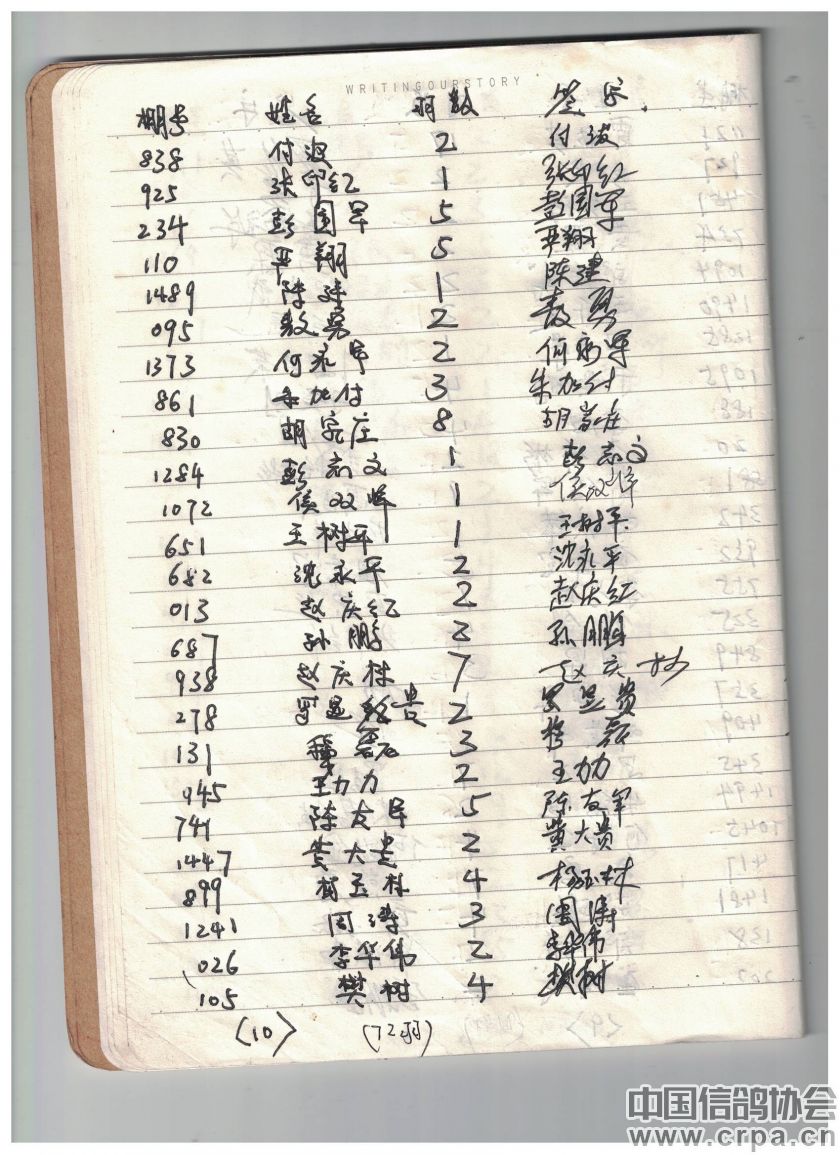 WRITINGOURSTORY
棚号 姓名 羽数 签字
838 付波 2 付波
925 张印红 1 张印红
234 彭国军 5 彭国军
110 平翔 5 平翔
1489 陈建 1 陈建
095 敖勇 2 敖勇
1373 何永军 2 何永军
861 朱加付 3 朱加付
830 胡家庄 8 胡家庄
1284 彭志文 1 彭志文
1072 侯双峰 1 侯双峰
651 王树平 1 王树平
682 沈永平 2 沈永平
013 赵庆红 2 赵庆红
687 孙鹏 2 孙鹏
938 赵庆林 7 赵庆林
278 罗显贵 2 罗显贵
131 磊 3 磊
945 王力力 2 王力力
741 陈友军 5 陈友军
1447 黄大贵 2 黄大贵
899 杨玉林 4 杨玉林
1241 周涛 3 周涛
026 李华伟 2 李华伟
105 樊树 4 樊树
(10) (72羽)
中国信鸽协会
www.crpa.cn